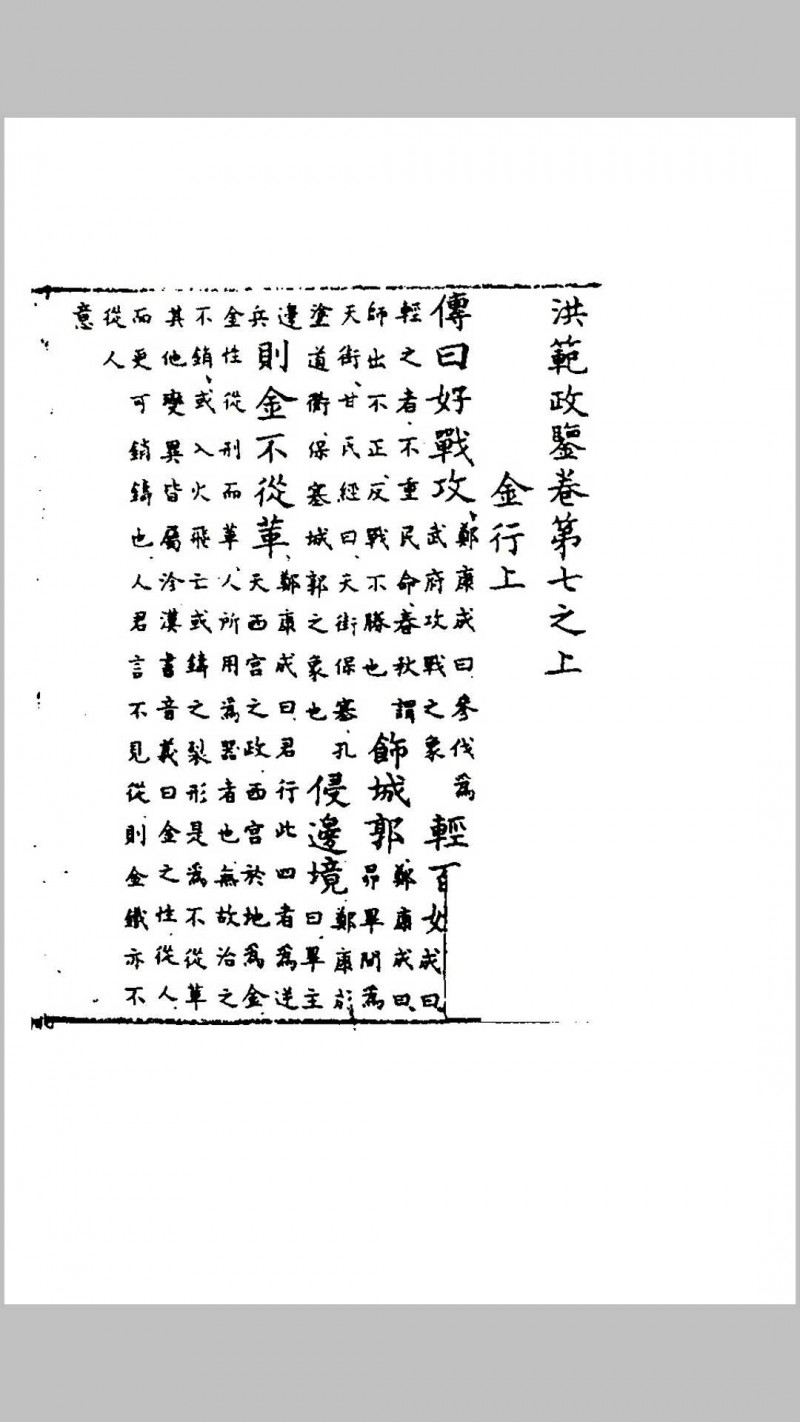 洪範政鑒卷第七之上
金行上
傳曰好戰攻
鄭康成曰參伐為
武府攻戰之象
輕百
成曰
輕之者不重民命春秋謂
師出不正反戰不勝也
飾城郭
鄭康成曰
昴畢間為
天街甘氏經曰天街保塞孔
塗道衢保塞城郭之象也
侵邊境
鄭康
曰畢主
邊
兵
則金不從革
鄭康成曰君行此四者為逆
天西宮之政西宮於地為金
金性從刑而革人所用為器者也無故冶之
不銷或入火飛亡或鑄之裂形是為不從革
其他變異皆屬沴漢書音義曰金之性從人
而更可銷鑄也人君言不見從則金鐵亦不
從人
意